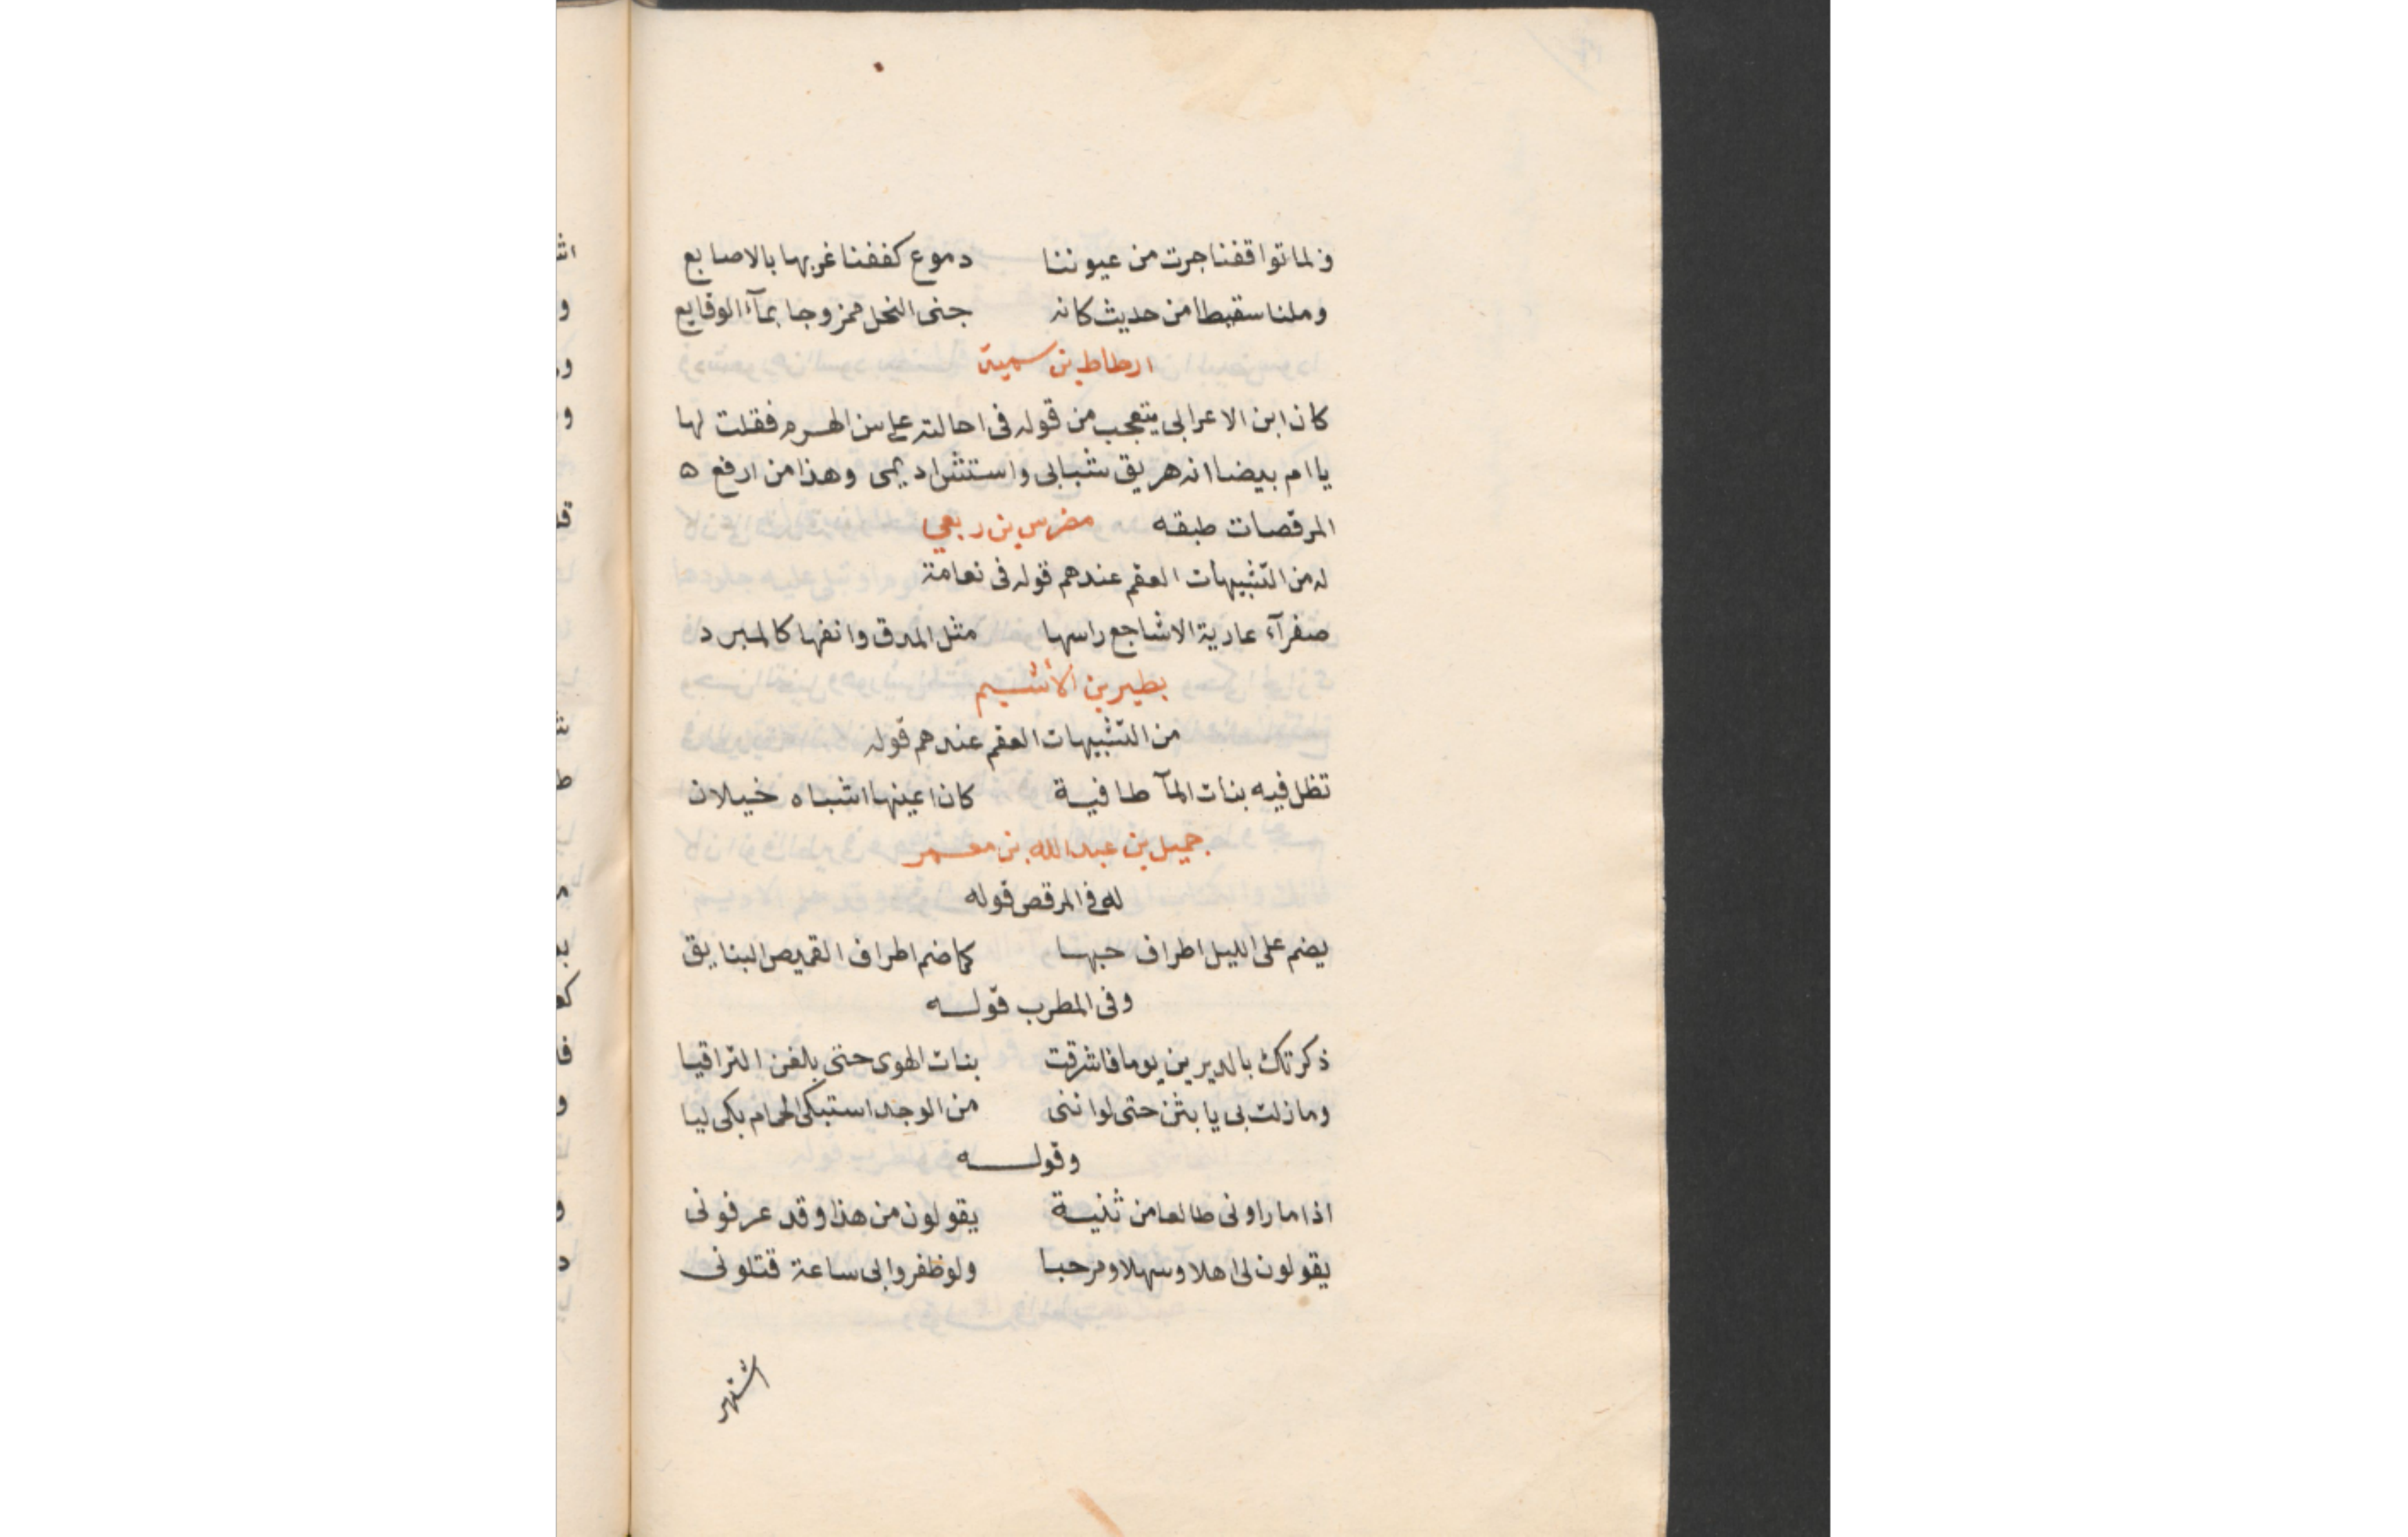 ولما تواقفنا جرت من عيوننا دموع كففنا غربها بالاصابع
وملنا سقيطا من حديث كانه جنى النحل ممزوجا بمآء الوقايع
ارطاط بن سمية
كان ابن الاعرابى يتعجب من قوله فى احالته على سن الهرم فقلت لها
يا ام بيضا انه هريق شبابى واستشن اديمى وهذا من ارفع ه
المرقصات طبقه مضرس بن ربعي
له من التشبيهات العقم عندهم قوله فى نعامة
صفرآء عارية الاشاجع راسها مثل المدق وانفها كالمبرد
بطير بن الأشيم
من التشبيهات العقم عندهم قوله
تظل فيه بنات المآ طافية كان اعينها اشباه خيلان
جميل بن عبد الله بن معمر
له فى المرقص قوله
يضم على الليل اطراف حبها كما ضم اطراف القميص البنايق
وفى المطرب قوله
ذكرتك بالديرين يوما فاشرقت بنات الهوى حتى بلغن التراقيا
وما زلت بى يا بثن حتى لو اننى من الوجد استبكى الحمام بكى ليا
وقوله
اذا ما راونى طالعا من ثنية يقولون من هذا وقد عرفونى
يقولون لى اهلا وسهلا ومرحبا ولو ظفروا بى ساعة قتلونى